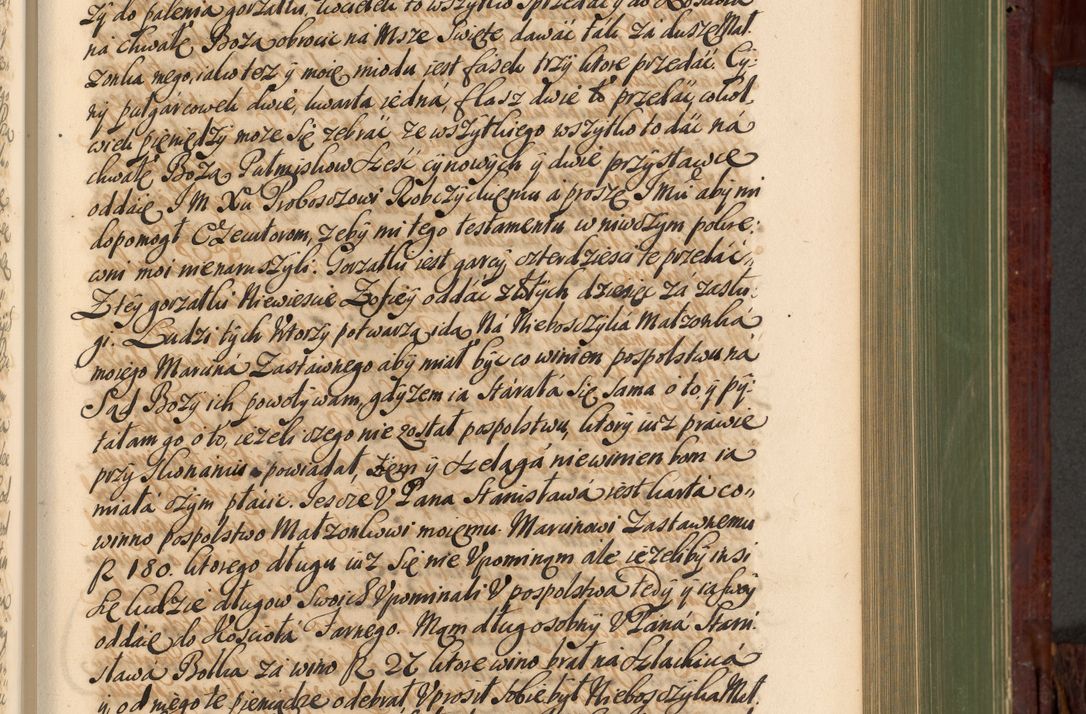 zy do palenia gorzałki, kociełek to wszytko sprzedać y do Kościoła
na chwałę Bożą obrocic na Msze Swięte dawać tak za duszę Mał.
zonka mego, iako tesz y moię, miodu iest fasek trzy ktore przedać. Cy-
ny pułgarcowek dwie, kwarta iedna, flasz dwie to przedać, cokol
wiek pieniędzy może się zebrać ze wszytkiego wszytko to dać na
chwałę Bożą Pułmiskow sześć cynowych y dwie przystawce
oddaię J M Xu Proboszowi Robczyckiemu a proszę J Mći aby mi
dopomogł Exekutorom, zeby mi tego testamentu w niwczym pokre-
wni moi nienaruszyli. Gorzałki iest garcy czterdziesci te przedać,,
Z tey gorzałki Niewiescie Zofiey oddać złotych dziesięc za zasłu-
gi. Ludzi tych ktorzy potwarzą idą Na Nieboszczyka Małzonka
moiego Marcina Zastawnego aby miał być co winien pospolstwu na
Sąd Boży ich powoływam, gdyżem ia starała się sama o to, y py-
tałam go o to, iezeli czego nie został pospolstwu, ktory iuz prawie
przy skonaniu powiadał, żem y szeląga niewinien bom ia
miała czym płacic. Jescze V Pana Stanisława iest karta co,,
winno pospolstwo Małzonkowi moiemu Marcinowi Zastawnemu
R 180. ktorego długu iuz się nie Vpominam ale iezeliby insi
Ludzie długow swoich Vpominali V pospolstwa tedy y ia swoy
oddaię do Kościoła Farnego. Mam dług osobny V Pana Stani-
sława Bolka za wino R 27 ktore wino brał na Szlachica
y od niego te pieniądze odebrał Vprosił sobie był Nieboszczyka Mał.